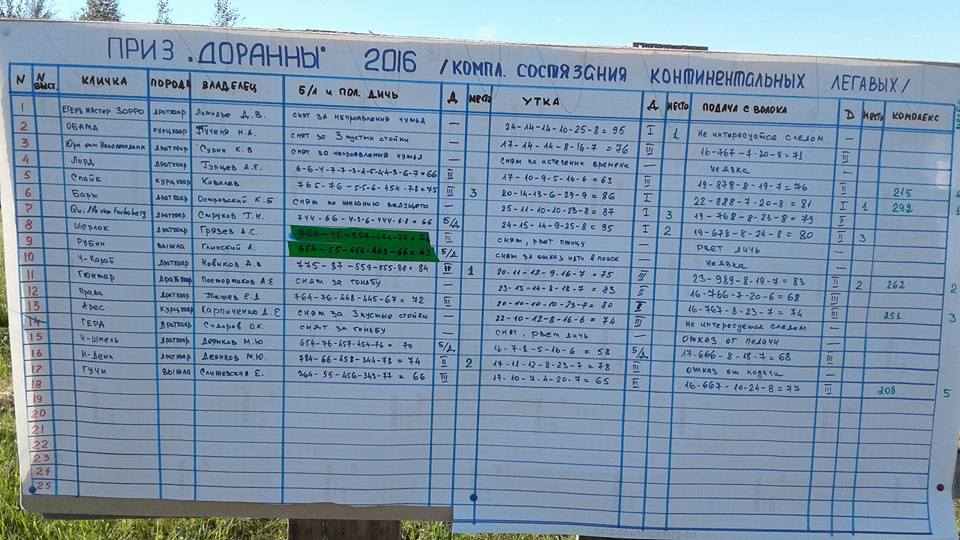 ПРИЗ „ДОРАННЫ" 2016 /КОМПЛ. СОСТЯЗАНИЯ КОНТИНЕНТАЛЬНЫХ ЛЕГАВЫХ/
N N выст. КЛИЧКА ПОРОДА ВЛАДЕЛЕЦ Б/Л И ПОЛ. ДИЧЬ Д МЕСТО УТКА Д МЕСТО ПОДАЧА С ВОЛОКА D МЕСТО КОМПЛЕКС
1 ЕГЕРЬ МАСТЕР ЗОРРО дратхаар Д.В. снят за чутья — 24-14-14-10-25-8=95 I 1 Не интересуется следом —
2 ОБАМА курцхаар Н.А. снят за 3 пустых стойки — 17-14-14-8-16-7=76 III 16-767-7-20-8=71 III
3 дратхаар Сурин К.В снят за чутья — снят по истечении времени — неявка —
4 Лорд дратхаар Гурцев А.Е. 6-6-4-7-7-3-4-5-4-4-3-6-7=66 III 17-10-9-5-16-6=63 III 19-878-8-19-7=76 III 215 4
5 Спайк курцхаар Ковалев 765-76-55-6-454-78=75 II 3 20-14-13-6-29-9=86 I 22-888-7-20-8=81 I 1 292 1
6 Барж дратхаар Островский К.Б снят по желанию ведущего — 25-11-10-10-23-8=87 I 3 19-768-8-23-8=79 II
7 дратхаар Струков Г.Н. 744-66-4-3-6-444-6-8=66 Б/Д 24-15-14-9-25-8=95 I 2 19-678-8-24-8=80 II 3
8 Шерлок дратхаар Грязев А.С. II снят, рвет птицу — рвет дичь —
9 Рубин выжла Глинский А. 654-55-456-443-66=63 Б/Д снят за отказ идти в поиск — неявка —
10 Ч-Карат дратхаар Новиков А.В 775-87-559-555-88=84 II 1 20-11-12-9-16-7=75 III 23-989-8-19-7=83 II 2 262 2
11 Гюнтер дратхаар А.Е снят за гоньбу — 23-13-14-8-18-7=83 II 16-766-7-20-6=68 III
12 Права дратхаар Е.Д 764-76-448-445-67=72 III 20-10-10-10-23-7=80 II 16-767-8-23-7=74 III 251 3
13 Арес курцхаар Карпиченко Д.Е снят за 3 пустые стойки — 22-10-12-8-16-6=74 III не интересуется следом —
14 дратхаар Сидоров снят за гоньбу — снят, рвет дичь — отказ от подачи —
15 Ч-Шмель дратхаар Деянков М.Ю 654-76-457-454-76=70 Б/Д 16-7-8-5-16-6=58 Б/Д 17-666-8-18-7=68 III
16 Н-Денк дратхаар Деянков М.Ю. 784-66-458-344-73=74 II 2 17-11-12-8-23-7=78 III отказ от подачи —
17 Гучи выжла Слишевская Е. 364-55-456-343-77=66 III 17-10-7-4-20-7=65 III 16-667-10-24-8=77 III 208 5
18
19
20
21
22
23
24
25